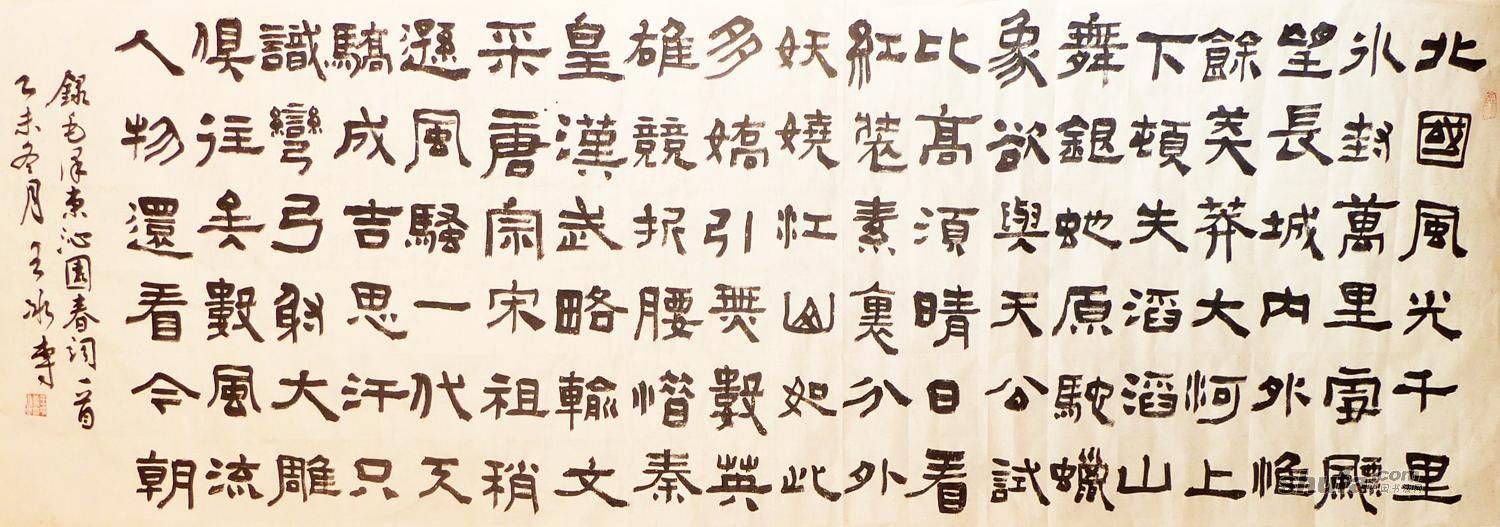 北國風光千里
冰封萬里雪飄
望長城内外惟
餘莽莽大河上
下頓失滔滔山
舞銀蛇原馳蠟
象欲與天公試
比高須晴日看
紅裝素裹分外
妖嬈江山如此
多嬌引無數英
雄競折腰惜秦
皇漢武略輸文
采唐宗宋祖稍
遜風騷一代天
驕成吉思汗只
識彎弓射大雕
俱往矣數風流
人物還看今朝
錄毛澤東沁園春詞一首
乙未冬月王冰書